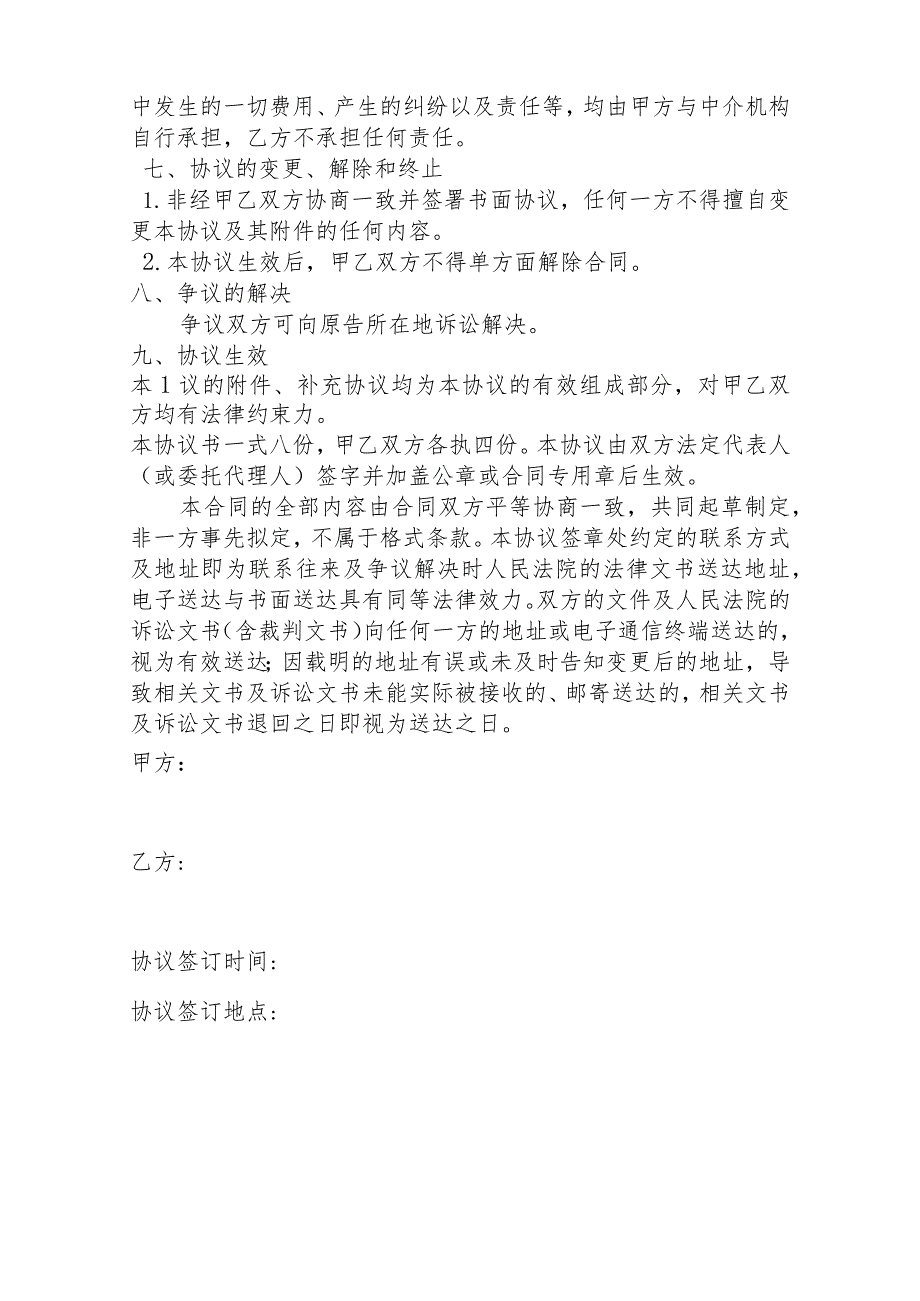 中发生的一切费用、产生的纠纷以及责任等，均由甲方与中介机构
自行承担，乙方不承担任何责任。
七、协议的变更、解除和终止
1.非经甲乙双方协商一致并签署书面协议，任何一方不得擅自变
更本协议及其附件的任何内容。
2.本协议生效后，甲乙双方不得单方面解除合同。
八、争议的解决
争议双方可向原告所在地诉讼解决。
九、协议生效
本1议的附件、补充协议均为本协议的有效组成部分，对甲乙双
方均有法律约束力。
本协议书一式八份，甲乙双方各执四份。本协议由双方法定代表人
（或委托代理人）签字并加盖公章或合同专用章后生效。
本合同的全部内容由合同双方平等协商一致，共同起草制定，
非一方事先拟定，不属于格式条款。本协议签章处约定的联系方式
及地址即为联系往来及争议解决时人民法院的法律文书送达地址，
电子送达与书面送达具有同等法律效力。双方的文件及人民法院的
诉讼文书（含裁判文书）向任何一方的地址或电子通信终端送达的，
视为有效送达；因载明的地址有误或未及时告知变更后的地址，导
致相关文书及诉讼文书未能实际被接收的、邮寄送达的，相关文书
及诉讼文书退回之日即视为送达之日。
甲方：
乙方:
协议签订时间:
协议签订地点: